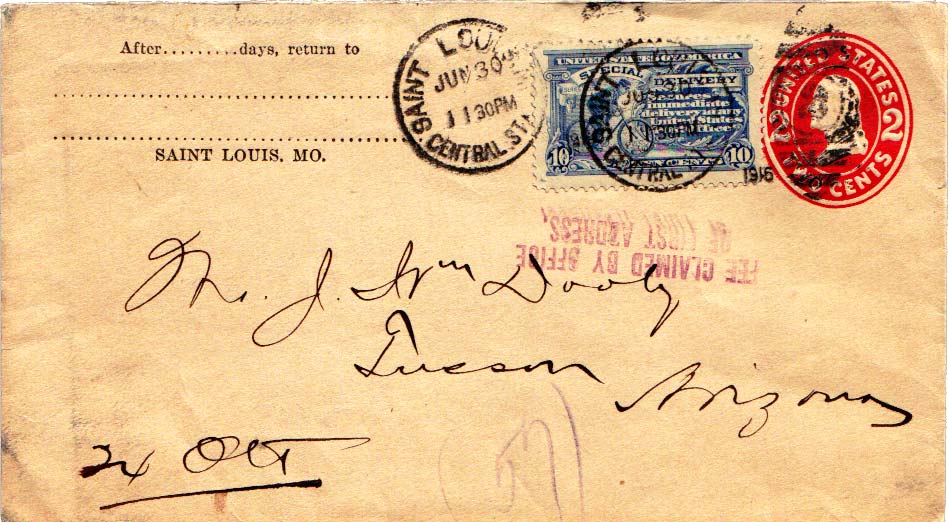 After.........days, return to
SAINT LOUIS, MO.
SAINT LOUIS
JUN 30
11 30PM
CENTRAL STA
UNITED STATES OF AMERICA
SPECIAL DELIVERY
Secures
immediate
delivery at any
United States
Post Office
10 TEN CENTS 10
SAINT
JUN 30
11 30PM
CENTRAL
1916
UNITED STATES
2 2
TWO CENTS
FEE CLAIMED BY OFFICE
OF FIRST ADDRESS.
Mr. J. Wm Dooly
Tucson
Arizona